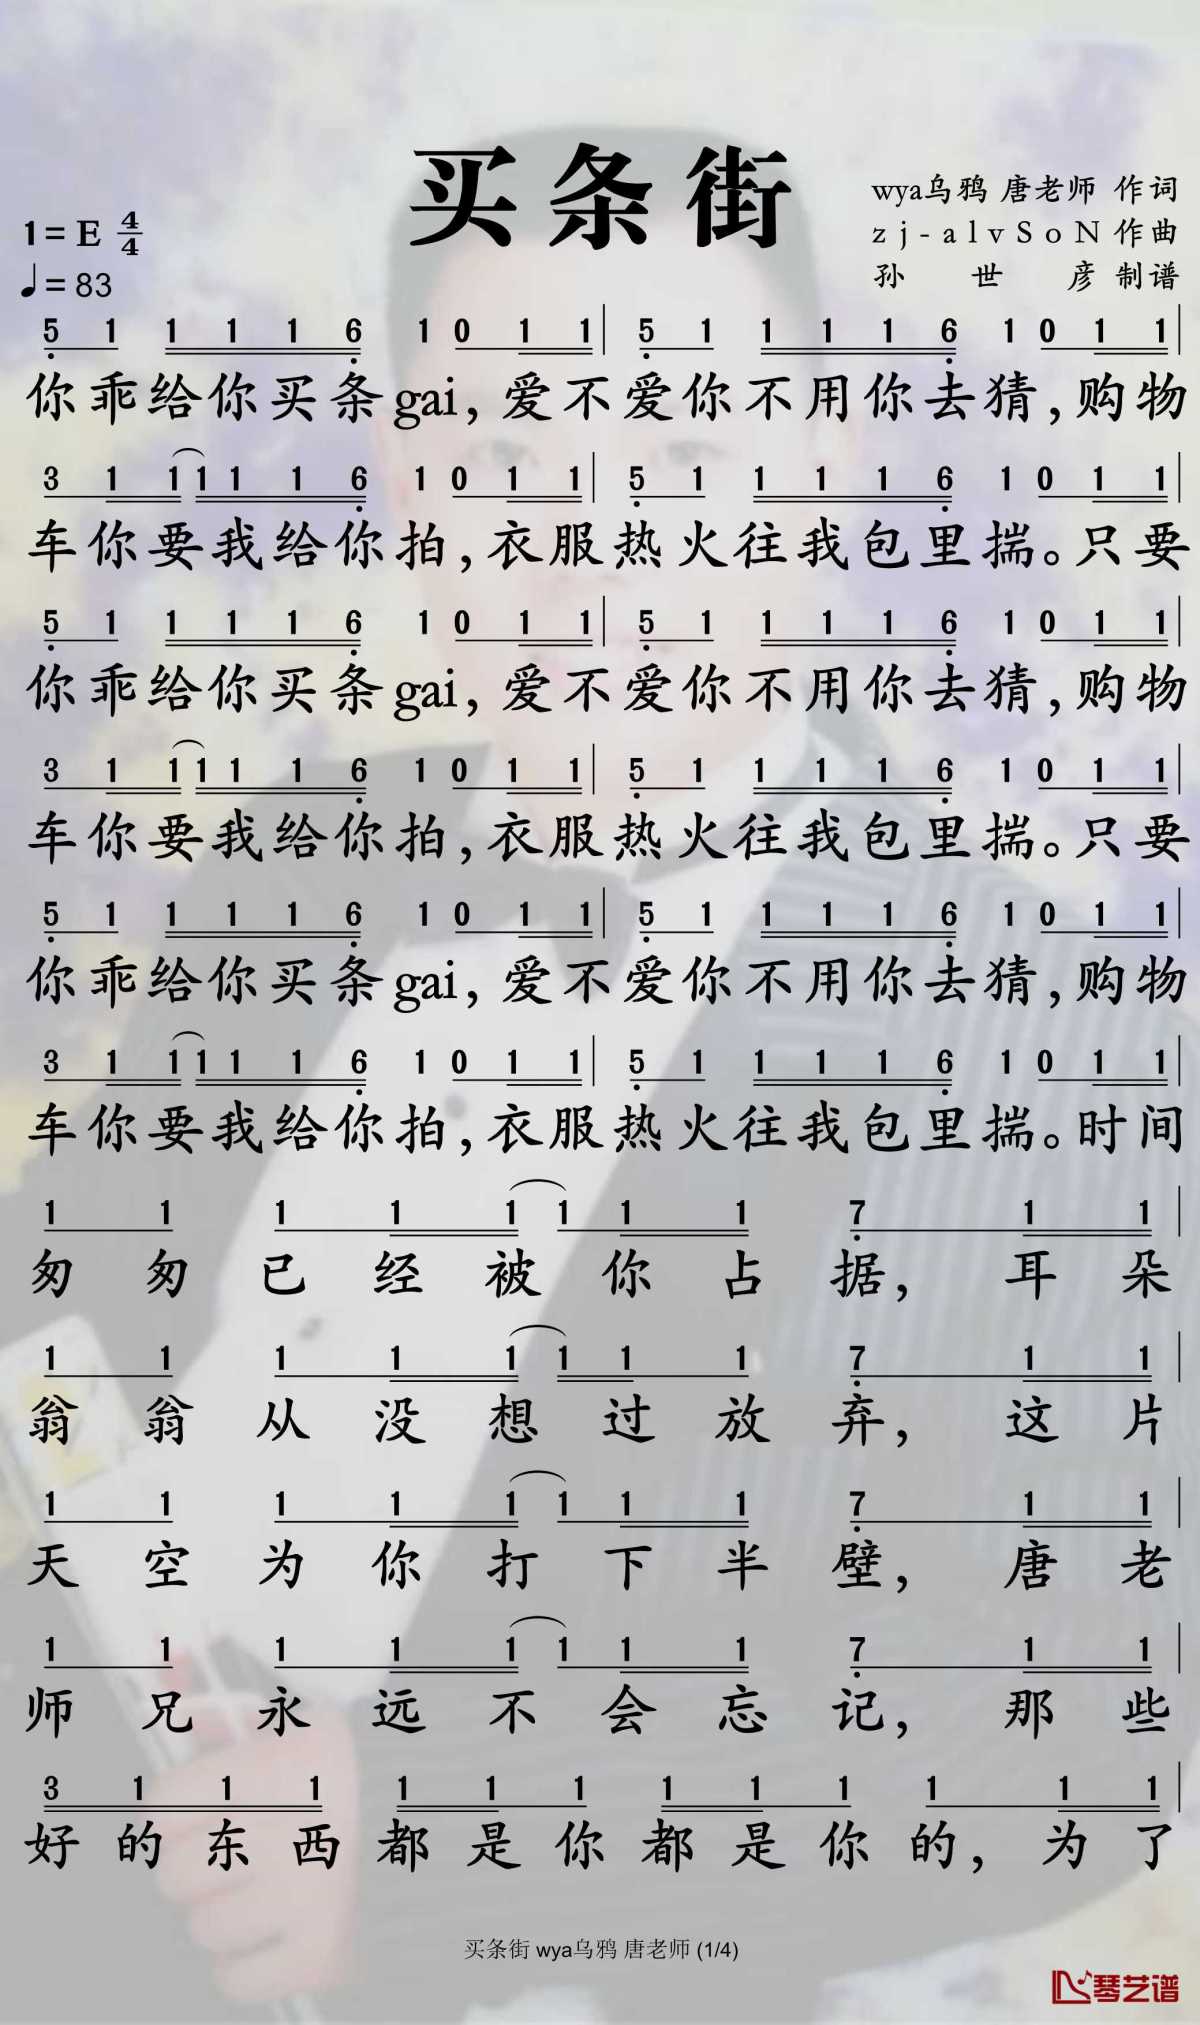 买条街
wya乌鸦 唐老师 作词
zj-alvSoN 作曲
孙世彦 制谱
1=E 4/4
♩=83
5 1 1 1 1 6 1 0 1 1 | 5 1 1 1 1 6 1 0 1 1 |
你乖给你买条gai, 爱不爱你不用你去猜, 购物
3 1 1 1 1 1 6 1 0 1 1 | 5 1 1 1 1 6 1 0 1 1 |
车你要我给你拍, 衣服热火往我包里揣。只要
5 1 1 1 1 6 1 0 1 1 | 5 1 1 1 1 6 1 0 1 1 |
你乖给你买条gai, 爱不爱你不用你去猜, 购物
3 1 1 1 1 1 6 1 0 1 1 | 5 1 1 1 1 6 1 0 1 1 |
车你要我给你拍, 衣服热火往我包里揣。只要
5 1 1 1 1 6 1 0 1 1 | 5 1 1 1 1 6 1 0 1 1 |
你乖给你买条gai, 爱不爱你不用你去猜, 购物
3 1 1 1 1 1 6 1 0 1 1 | 5 1 1 1 1 6 1 0 1 1 |
车你要我给你拍, 衣服热火往我包里揣。时间
1 1 1 1 1 1 1 1 7 1 1 |
匆匆已经被你占据, 耳朵
1 1 1 1 1 1 1 1 7 1 1 |
翁翁从没想过放弃, 这片
1 1 1 1 1 1 1 1 7 1 1 |
天空为你打下半壁, 唐老
1 1 1 1 1 1 1 1 7 1 1 |
师兄永远不会忘记, 那些
3 1 1 1 1 1 1 1 1 1 1 1 1 |
好的东西都是你都是你的, 为了
买条街 wya乌鸦 唐老师 (1/4)
琴艺谱